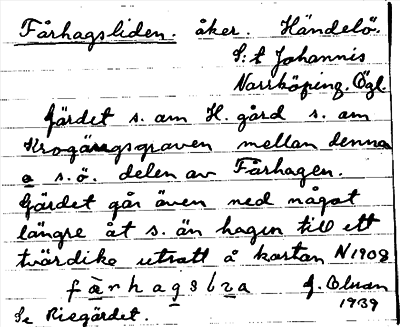 Fårhagsliden. åker. Händelö.
S:t Johannis
Norrköping. Ögl.
Gärdet s. om H. gård s. om
Krogängsgraven mellan denna
o s.ö. delen av Fårhagen.
Gärdet går även ned något
längre åt s. än hagen till ett
tvärdike utsatt å kartan N 1908
1939
Se Riegärdet.